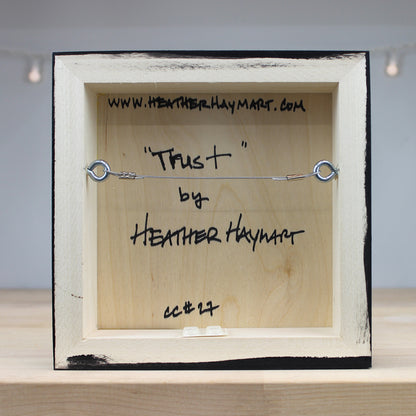 WWW.HEATHERHAYMART.COM
"Trust"
by
HEATHER HAYMART
CC#27